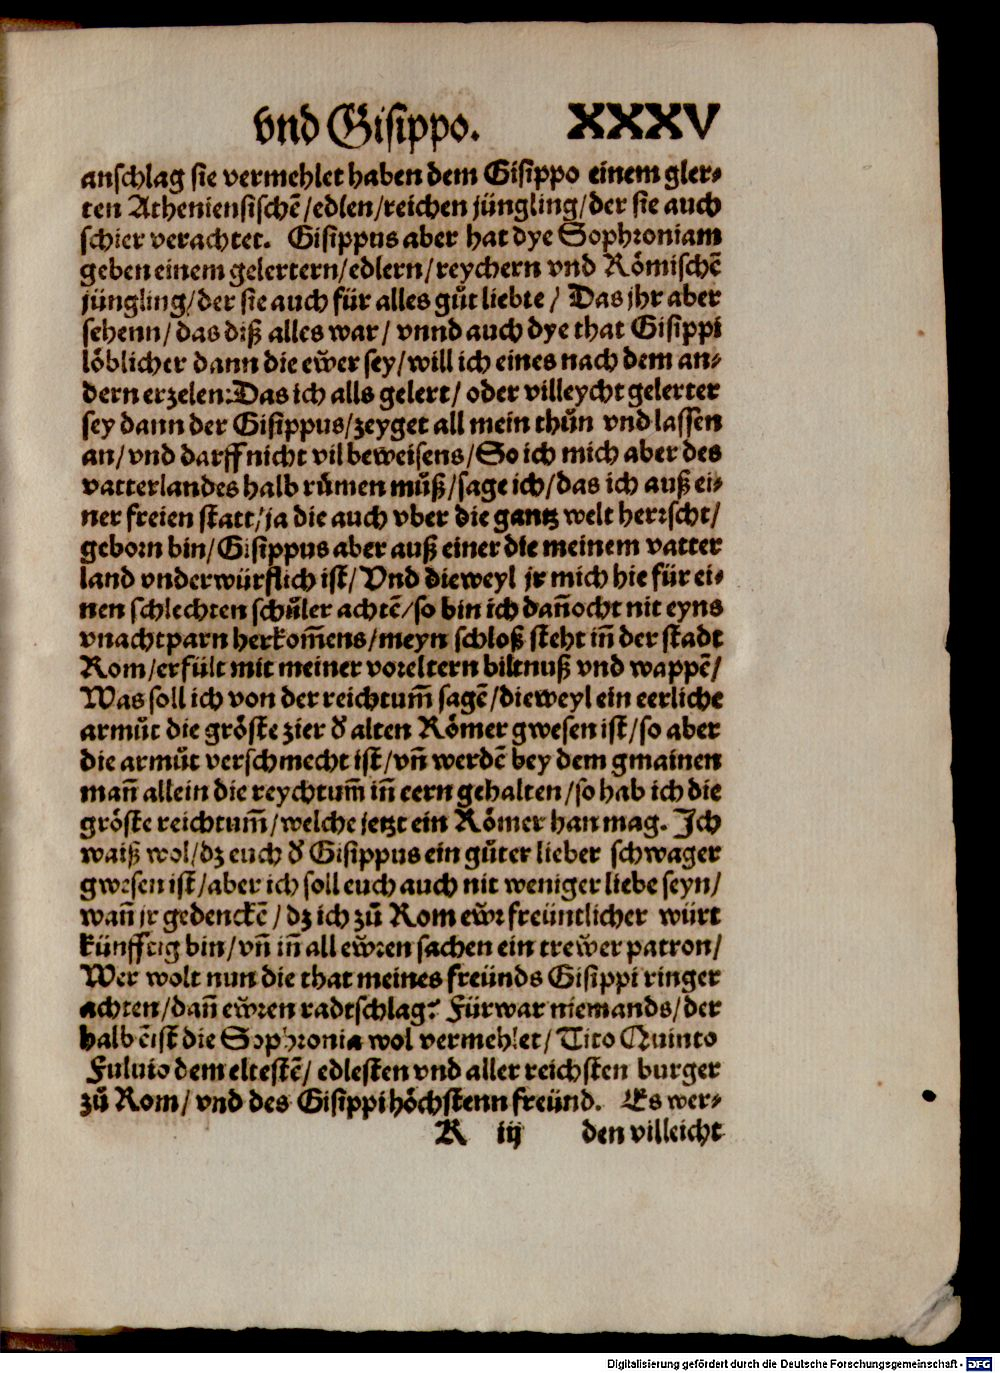 vnd Gisippo. XXXV
anschlag sie vermehlet haben dem Gisippo einem gler⸗
ten Atheniensischē /edlen/reichen jüngling/der sie auch
schier verachtet. Gisippus aber hat dye Sophroniam
geben einem gelertern/edlern/reychern vnd Römischē
jüngling/der sie auch für alles gůt liebte / Das jhr aber
sehenn/das diß alles war/ vnnd auch dye that Gisippi
löblicher dann die ewer sey/will ich eines nach dem an⸗
dern erzelen:Das ich alls gelert/ oder villeycht gelerter
sey dann der Gisippus/zeyget all mein thůn vnd lassen
an/vnd darff nicht vil beweisens/So ich mich aber des
vatterlandes halb růmen můß/sage ich/das ich auß ei⸗
ner freien statt/ja die auch vber die gantz welt herrscht/
geborn bin/Gisippus aber auß einer die meinem vatter
land vnderwürflich ist/Vnd dieweyl jr mich hie für ei⸗
nen schlechten schůler achtē/so bin ich dañocht nit eyns
vnachtparn herkom̃ens/meyn schloß steht iñ der stadt
Rom/erfült mit meiner voreltern biltnuß vnd wappē/
Was soll ich von der reichtum̃ sagē/dieweyl ein eerliche
armůt die gröste zier ð alten Römer gwesen ist/so aber
die armůt verschmecht ist/vñ werdē bey dem gmainen
mañ allein die reychtum̃ iñ eern gehalten/so hab ich die
gröste reichtum̃/welche jetzt ein Römer han mag. Ich
waiß wol/dz euch ð Gisippus ein gůter lieber schwager
gwesen ist/aber ich soll euch auch nit weniger liebe seyn/
wañ jr gedenckē / dz ich zů Rom ewr freüntlicher würt
künfftig bin/vñ iñ all ewren sachen ein trewer patron/
Wer wolt nun die that meines freünds Gisippi ringer
achten/dañ ewren radtschlag? Fürwar niemands/der
halb ēist die Sophronia wol vermehlet/Tito Quinto
Fuluio dem eltestē/ edlesten vnd aller reichsten burger
zů Rom/ vnd des Gisippi höchstenn freünd. Es wer⸗
R iij den villeicht
Digitalisierung gefördert durch die Deutsche Forschungsgemeinschaft - DFG